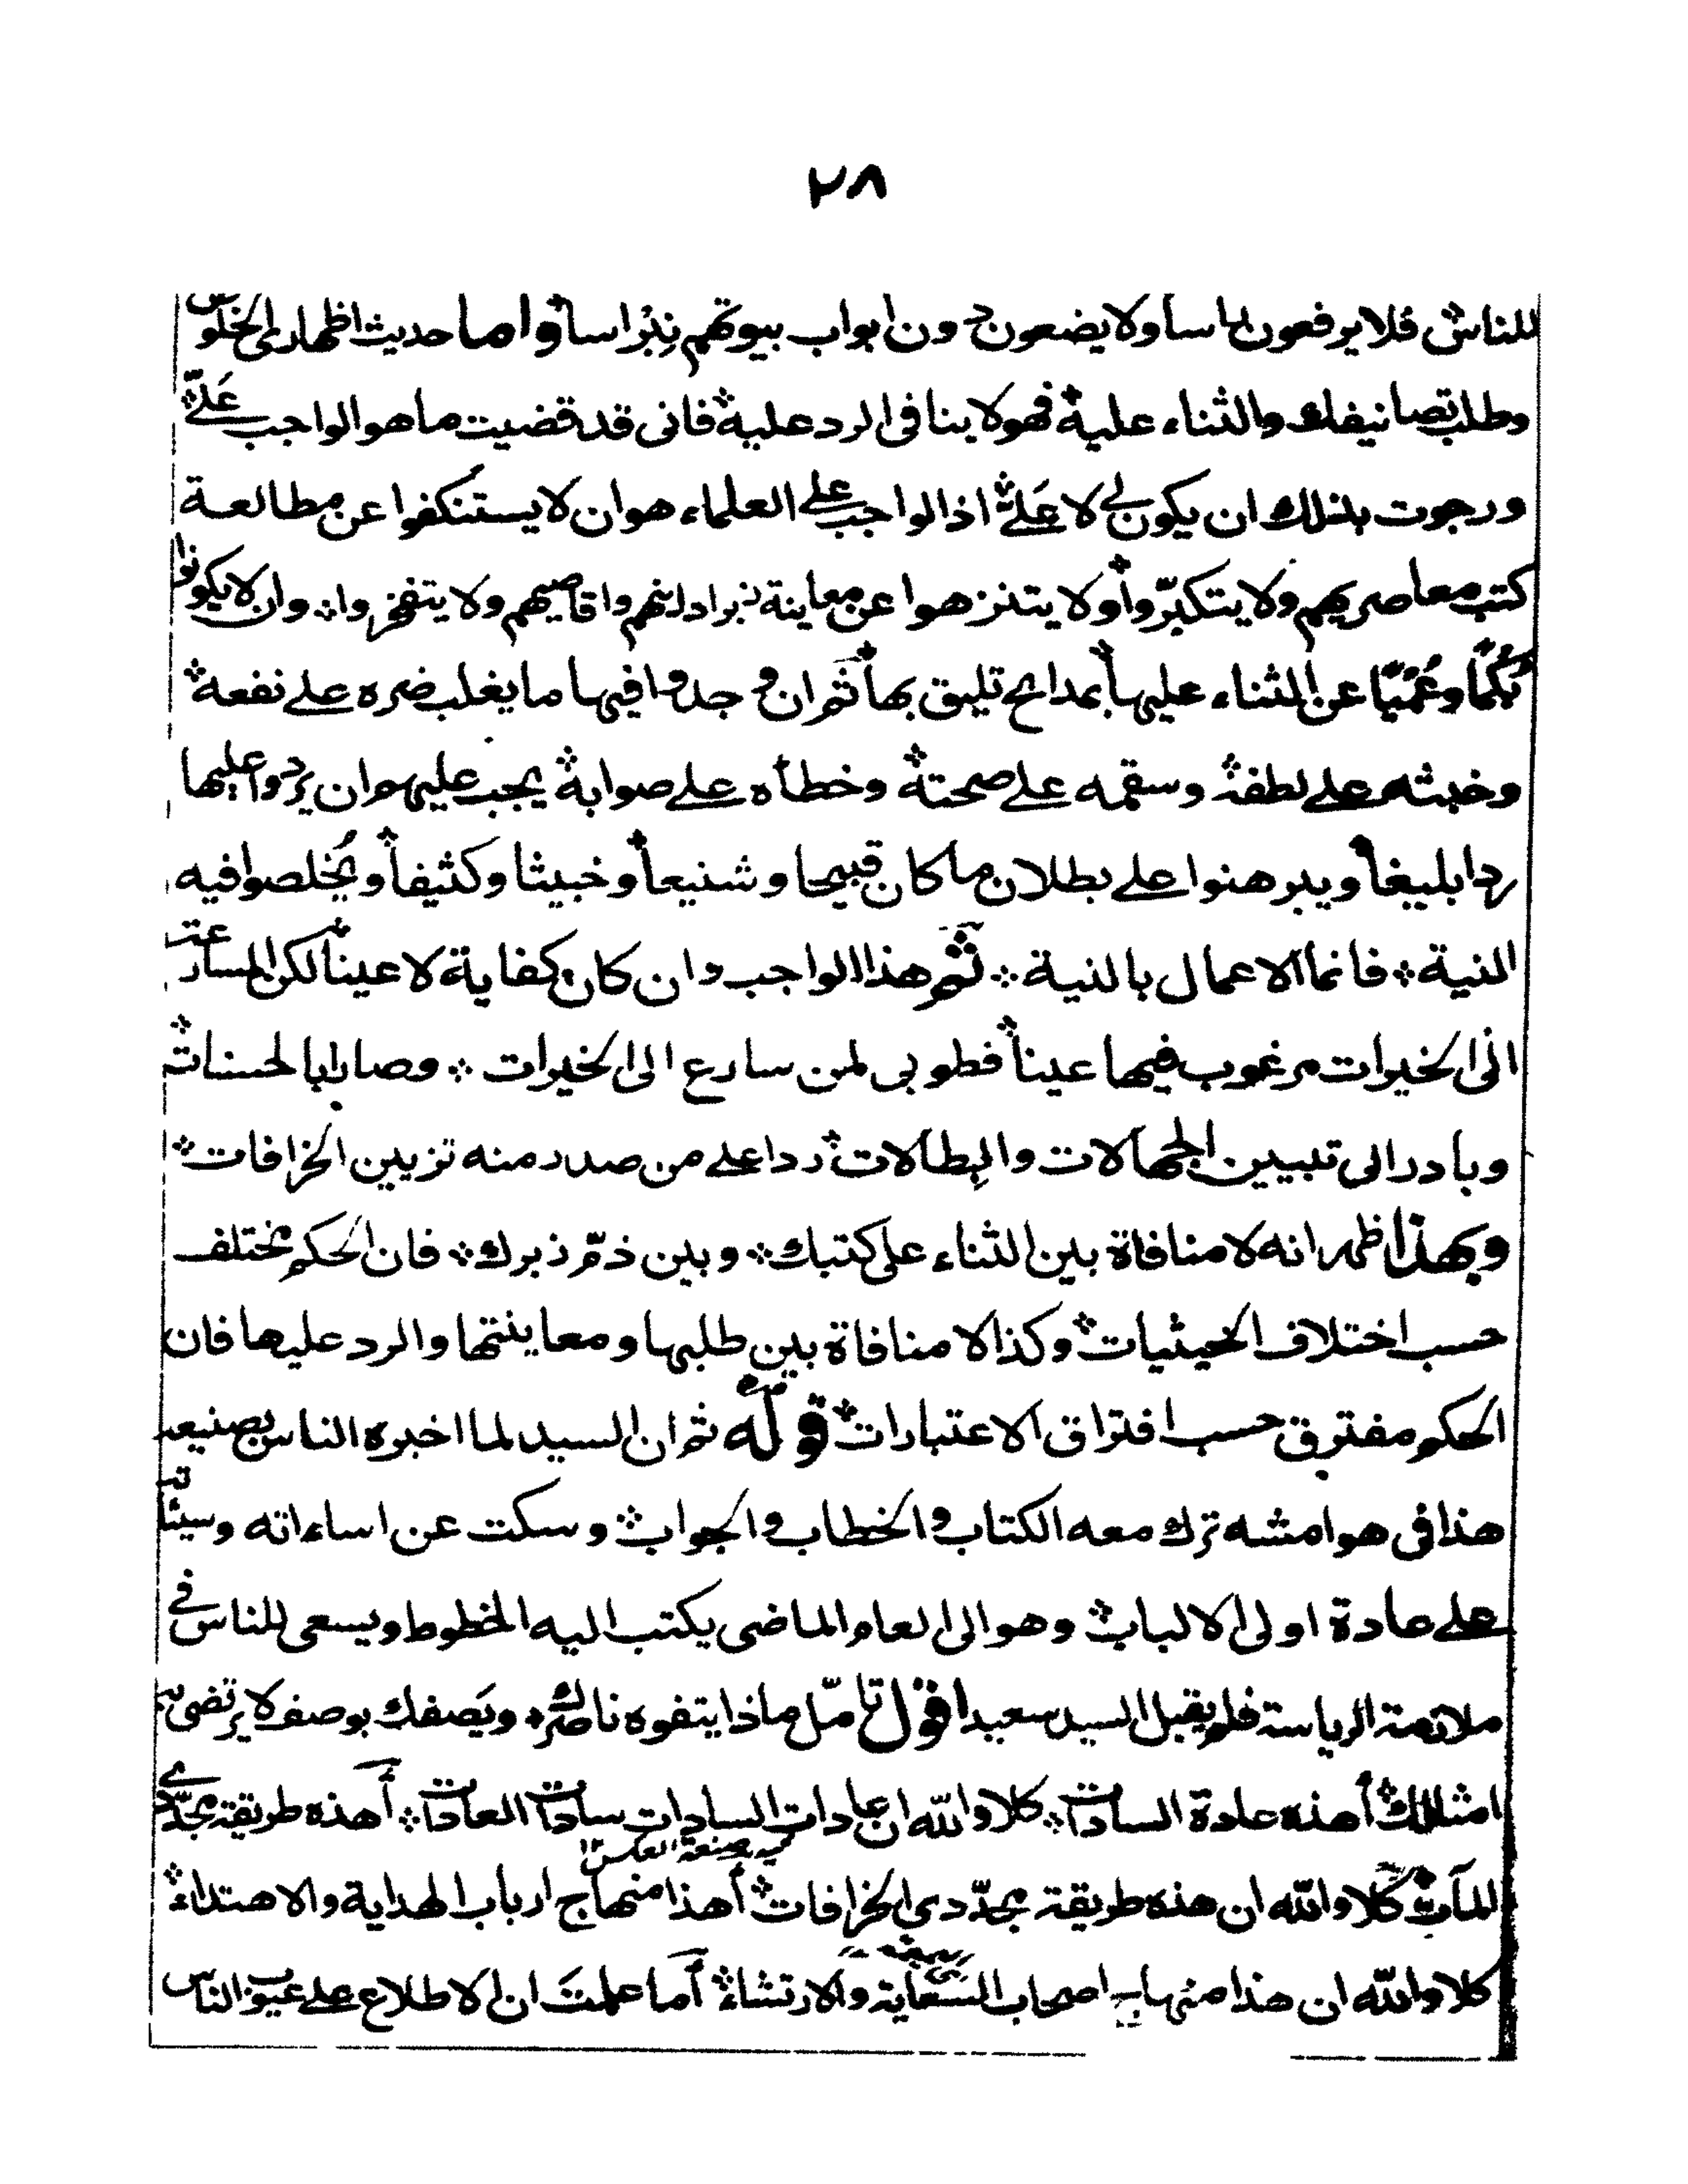 ٢٨
للناس فلا يرفعون راسا ولا يضعون دون ابواب بيوتهم نبراسا واما حديث اظهاري الخلوص
وطلب تصانيفك والثناء عليه فهو لا ينافى الرد عليه فانى قد قضيت ما هو الواجب علي
ورجوت بذلك ان يكون لي لا علي اذ الواجب على العلماء هو ان لا يستنكفوا عن مطالعة
كتب معاصريهم ولا يتكبّروا ولا يتنزهوا عن معاينة زبر ادانيهم واقاصيهم ولا يتفخروا وان لا يكونوا
بُكمًا وعُميًا عن الثناء عليها بمدائح تليق بها ثم ان وجدوا فيها ما يغلب ضره على نفعه
وخبثه على لطفه وسقمه على صحته وخطأه على صوابه يجب عليهم ان يردوا عليها
ردا بليغا ويبرهنوا على بطلان ما كان قبيحا وشنيعا وخبيثا وكثيفا ويُخلصوا فيه
النية فانما الاعمال بالنية ثم هذا الواجب وان كان كفاية لا عينا لكن المسارعة
الى الخيرات مرغوب فيها عينا فطوبى لمن سارع الى الخيرات وصار بالحسنات
وبادر الى تبيين الجهالات والبطالات ردا على من صدر منه تزيين الخرافات
وبهذا ظهر انه لا منافاة بين الثناء على كتبك وبين ذمّ زبرك فان الحكم يختلف
حسب اختلاف الحيثيات وكذا لا منافاة بين طلبها ومعاينتها والرد عليها فان
الحكم مفترق حسب افتراق الاعتبارات قوله ثم ان السيد لما اخبره الناس بصنيعه
هذا فى هوامشه ترك معه الكتاب والخطاب والجواب وسكت عن اساءاته وسيئاته
على عادة اولى الالباب وهو الى العام الماضى يكتب اليه الخطوط ويسعى للناس في
ملازمة الرياسة فلم يقبل السيد سعيه اقول تامّل ماذا يتفوه ناصرك ويَصفك بوصف لا يرتضى به
امثالك أهذه عادة السادات كلا والله ان عادات السادات سادات العادات أهذه طريقة مجدّدي
المآت كلا والله ان هذه طريقة مجدّدي الخرافات أهذا منهاج ارباب الهداية والاهتداء
كلا والله ان هذا منهاج اصحاب السعاية والارتشاء أما علمتَ ان الاطلاع على عيوب الناس